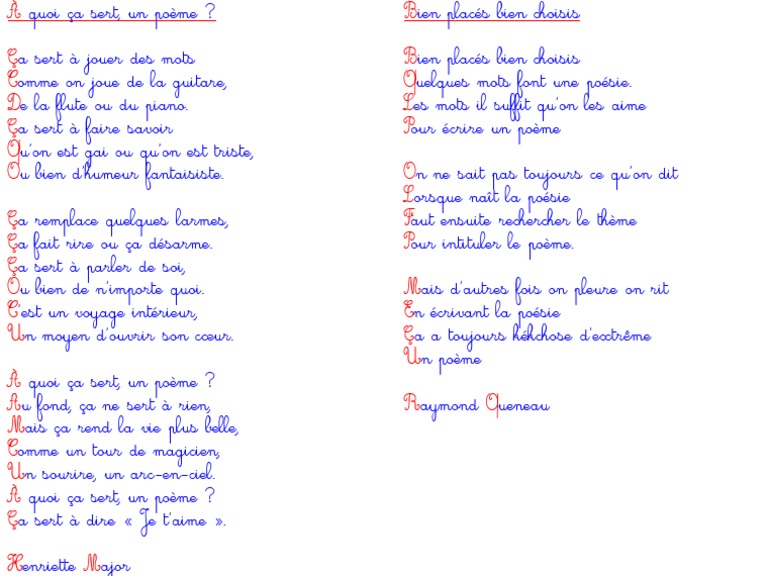 À quoi ça sert, un poème ?
Ça sert à jouer des mots
Comme on joue de la guitare,
De la flute ou du piano.
Ça sert à faire savoir
Qu'on est gai ou qu'on est triste,
Ou bien d'humeur fantaisiste.
Ça remplace quelques larmes,
Ça fait rire ou ça désarme.
Ça sert à parler de soi,
Ou bien de n'importe quoi.
C'est un voyage intérieur,
Un moyen d'ouvrir son cœur.
À quoi ça sert, un poème ?
Au fond, ça ne sert à rien,
Mais ça rend la vie plus belle,
Comme un tour de magicien,
Un sourire, un arc-en-ciel.
À quoi ça sert, un poème ?
Ça sert à dire « Je t'aime ».
Henriette Major
Bien placés bien choisis
Bien placés bien choisis
Quelques mots font une poésie.
Les mots il suffit qu'on les aime
Pour écrire un poème
On ne sait pas toujours ce qu'on dit
Lorsque naît la poésie
Faut ensuite rechercher le thème
Pour intituler le poème.
Mais d'autres fois on pleure on rit
En écrivant la poésie
Ça a toujours kékchose d'extrême
Un poème
Raymond Queneau